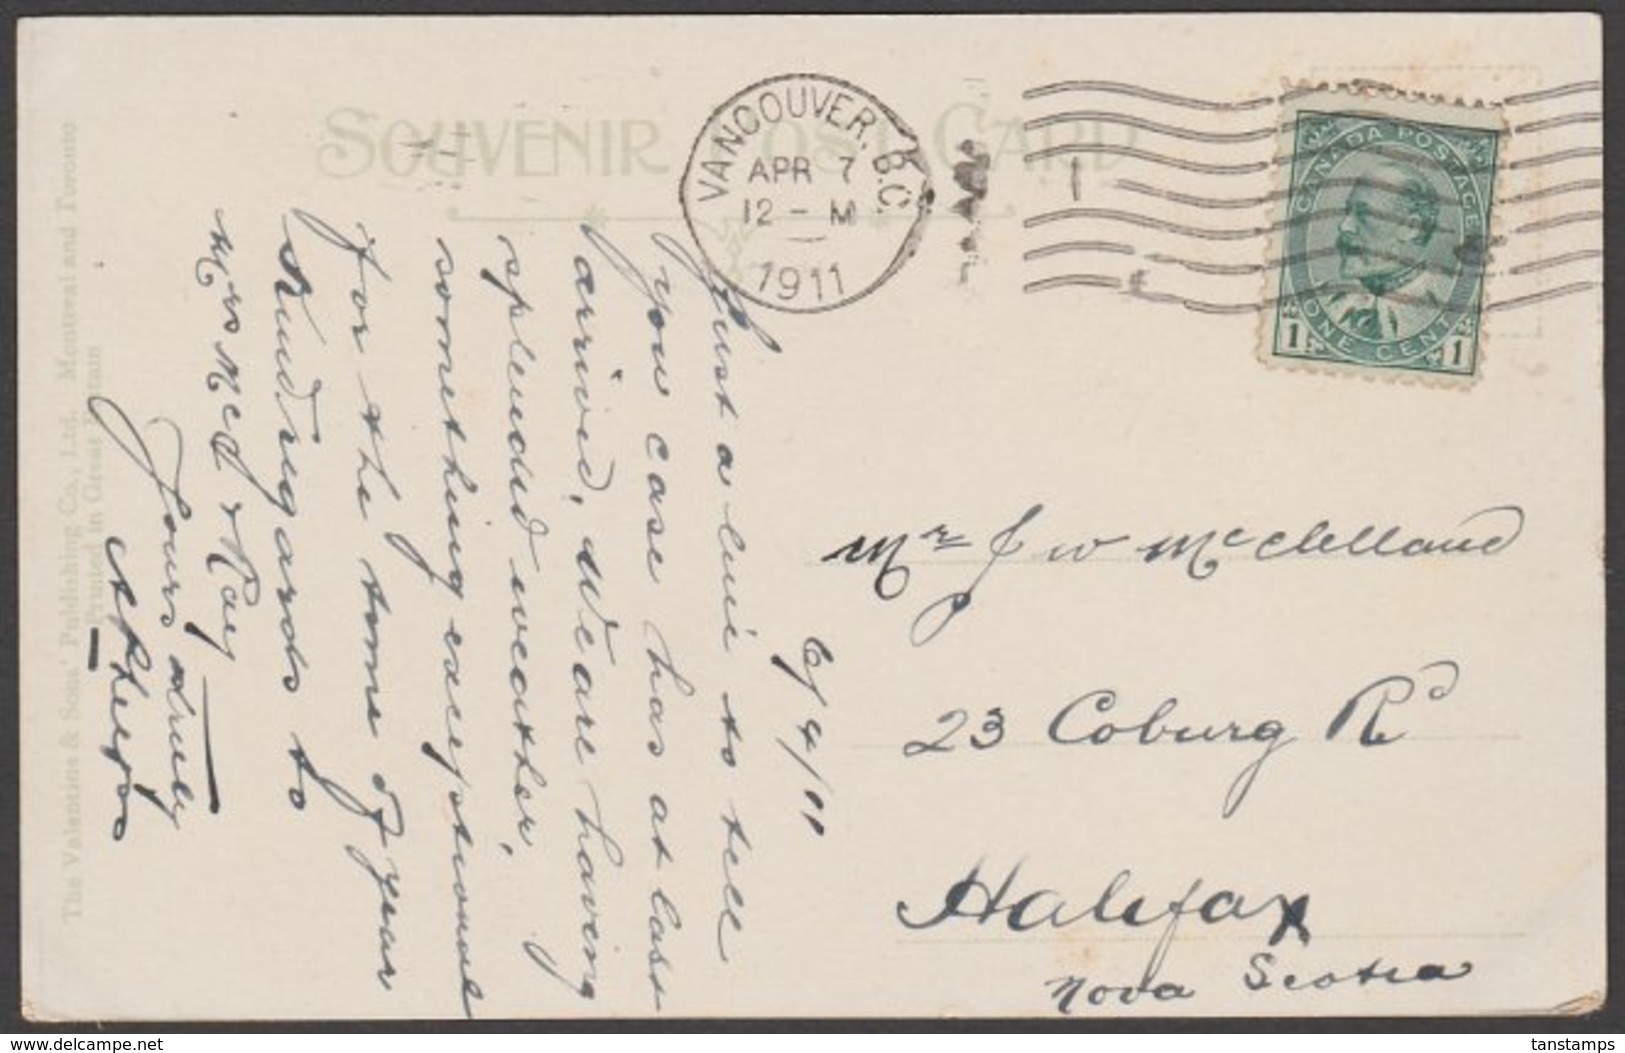 SOUVENIR POST CARD
VANCOUVER, B.C.
APR 7
12 - M
1911
CANADA POSTAGE
ONE CENT
1 1
6/4/11
Just a line to tell
you case has at last
arrived, We are having
splendid weather,
something exceptional
for the time of year
Kind regards to
Mrs McC & Ray
Yours truly
Mr J W McClelland
23 Coburg Rd
Halifax
Nova Scotia
The Valentine & Sons' Publishing Co., Ltd. Montreal and Toronto
Printed in Great Britain
www.delcampe.net
tanstamps